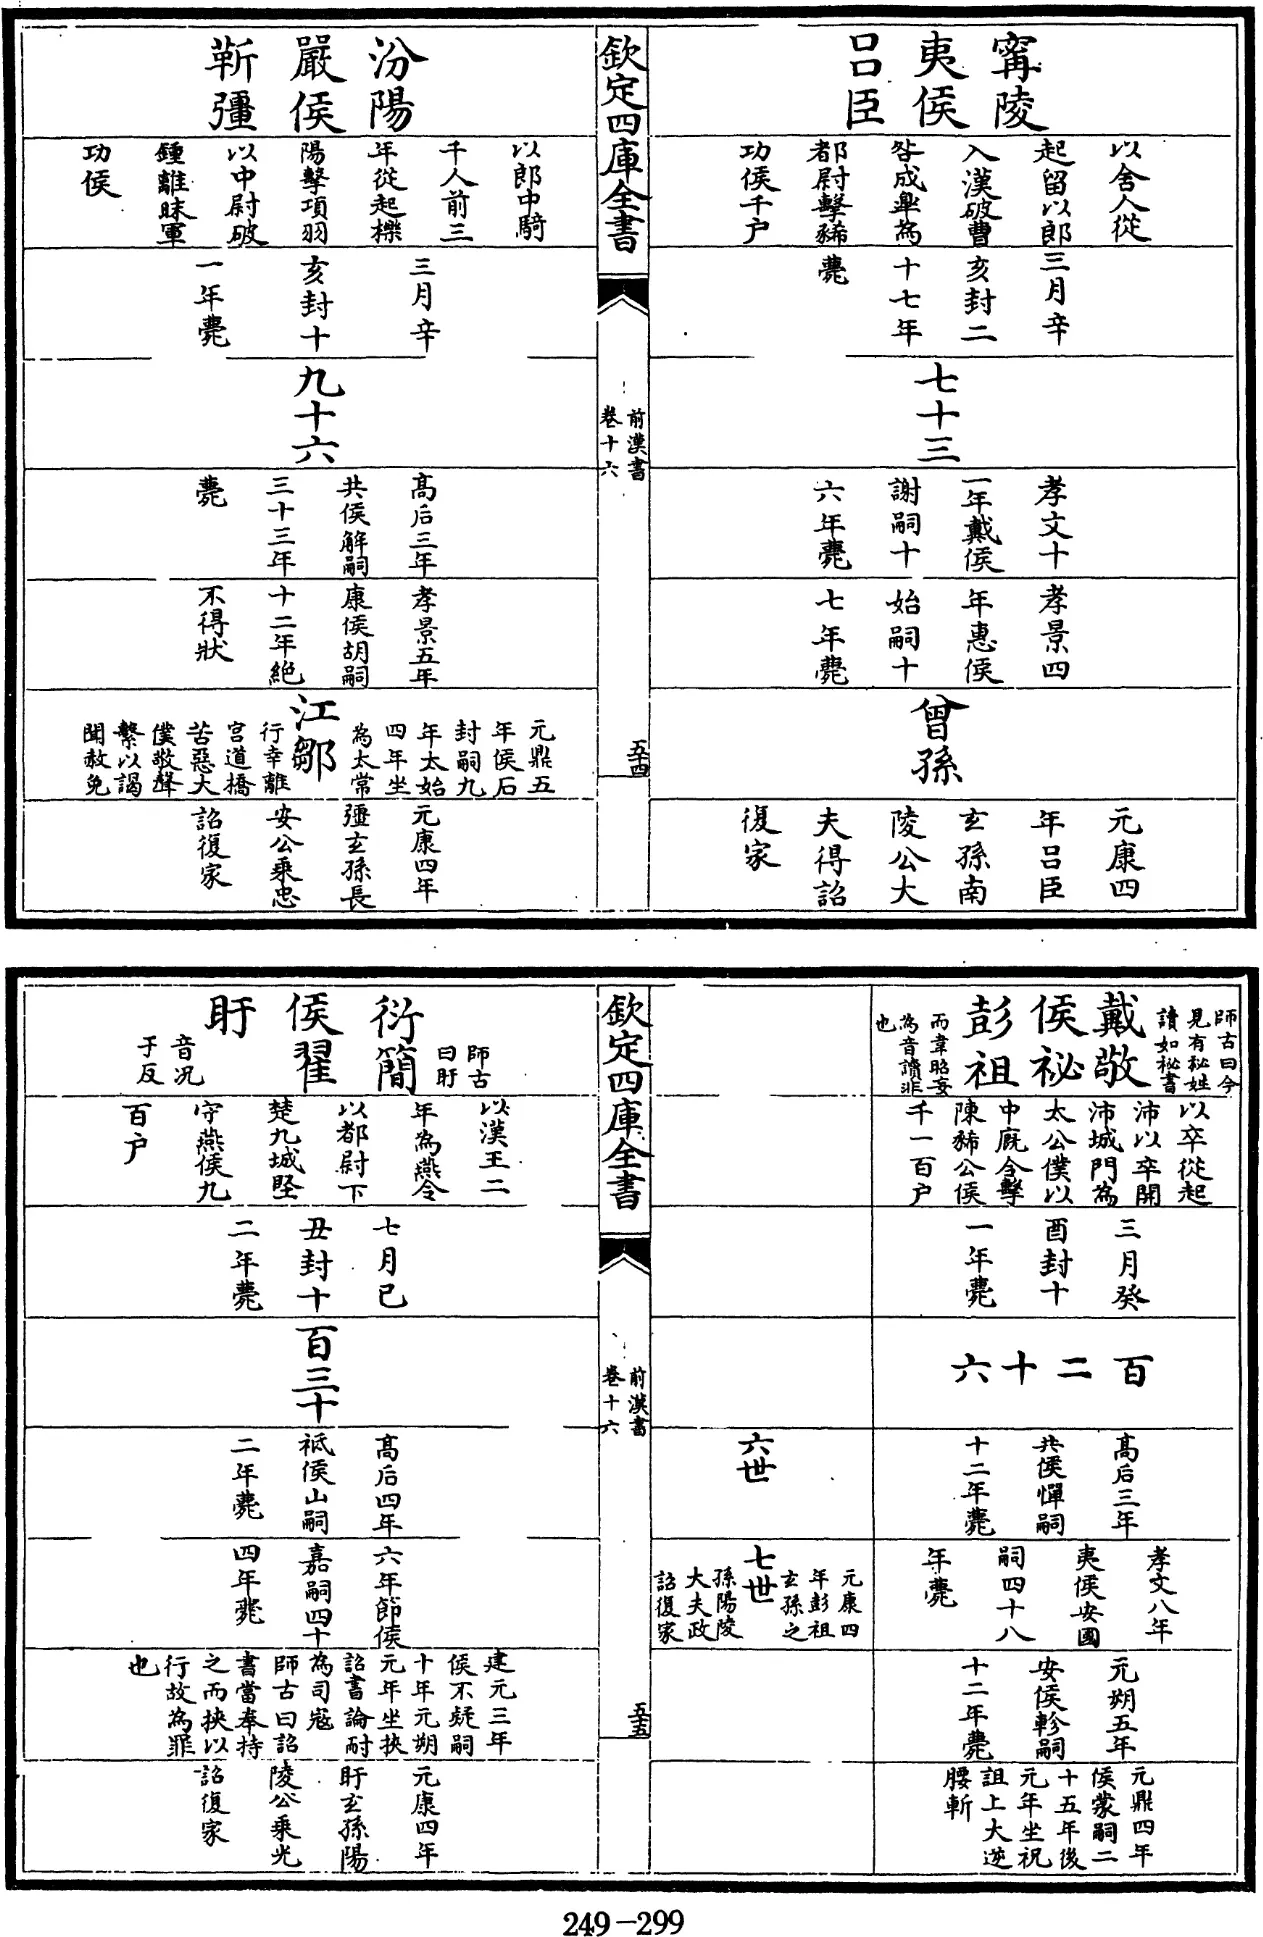 寗陵
夷侯
吕臣
以舍人從
起留以郎
入漢破曹
咎成臯為
都尉擊豨
功侯千户
三月辛
亥封二
十七年
薨
七十三
孝文十
一年戴侯
謝嗣十
六年薨
孝景四
年惠侯
始嗣十
七年薨
曾孫
元康四
年吕臣
玄孫南
陵公大
夫得詔
復家
欽定四庫全書
前漢書
卷十六
五十四
汾陽
嚴侯
靳彊
以郎中騎
千人前三
年從起櫟
陽擊項羽
以中尉破
鍾離眛軍
功侯
三月辛
亥封十
一年薨
九十六
髙后三年
共侯解嗣
三十三年
薨
孝景五年
康侯胡嗣
十二年絶
不得狀
江鄒
元鼎五
年侯石
封嗣九
年太始
四年坐
為太常
行幸離
宫道橋
苦惡大
僕敬聲
繫以謁
聞赦免
元康四年
彊玄孫長
安公乘忠
詔復家
戴敬
侯祕
彭祖
師古曰今
見有秘姓
讀如秘書
而韋昭妄
為音讀非
也
以卒從起
沛以卒開
沛城門為
太公僕以
中廐令擊
陳豨公侯
千一百户
三月癸
酉封十
一年薨
百二十六
髙后三年
共侯憚嗣
十二年薨
孝文八年
夷侯安國
嗣四十八
年薨
元朔五年
安侯軫嗣
十二年薨
元鼎四年
侯蒙嗣二
十五年後
元年坐祝
詛上大逆
腰斬
六世
七世
元康四
年彭祖
玄孫之
孫陽陵
大夫政
詔復家
欽定四庫全書
前漢書
卷十六
五十五
衍簡
侯翟
盱
師古
曰盱
音况
于反
以漢王二
年為燕令
以都尉下
楚九城堅
守燕侯九
百户
七月已
丑封十
二年薨
百三十
髙后四年
祗侯山嗣
二年薨
六年節侯
嘉嗣四十
四年薨
建元三年
侯不疑嗣
十年元朔
元年坐挾
詔書論耐
為司寇
師古曰詔
書當奉持
之而挾以
行故為罪
也
元康四年
盱玄孫陽
陵公乘光
詔復家
249-299